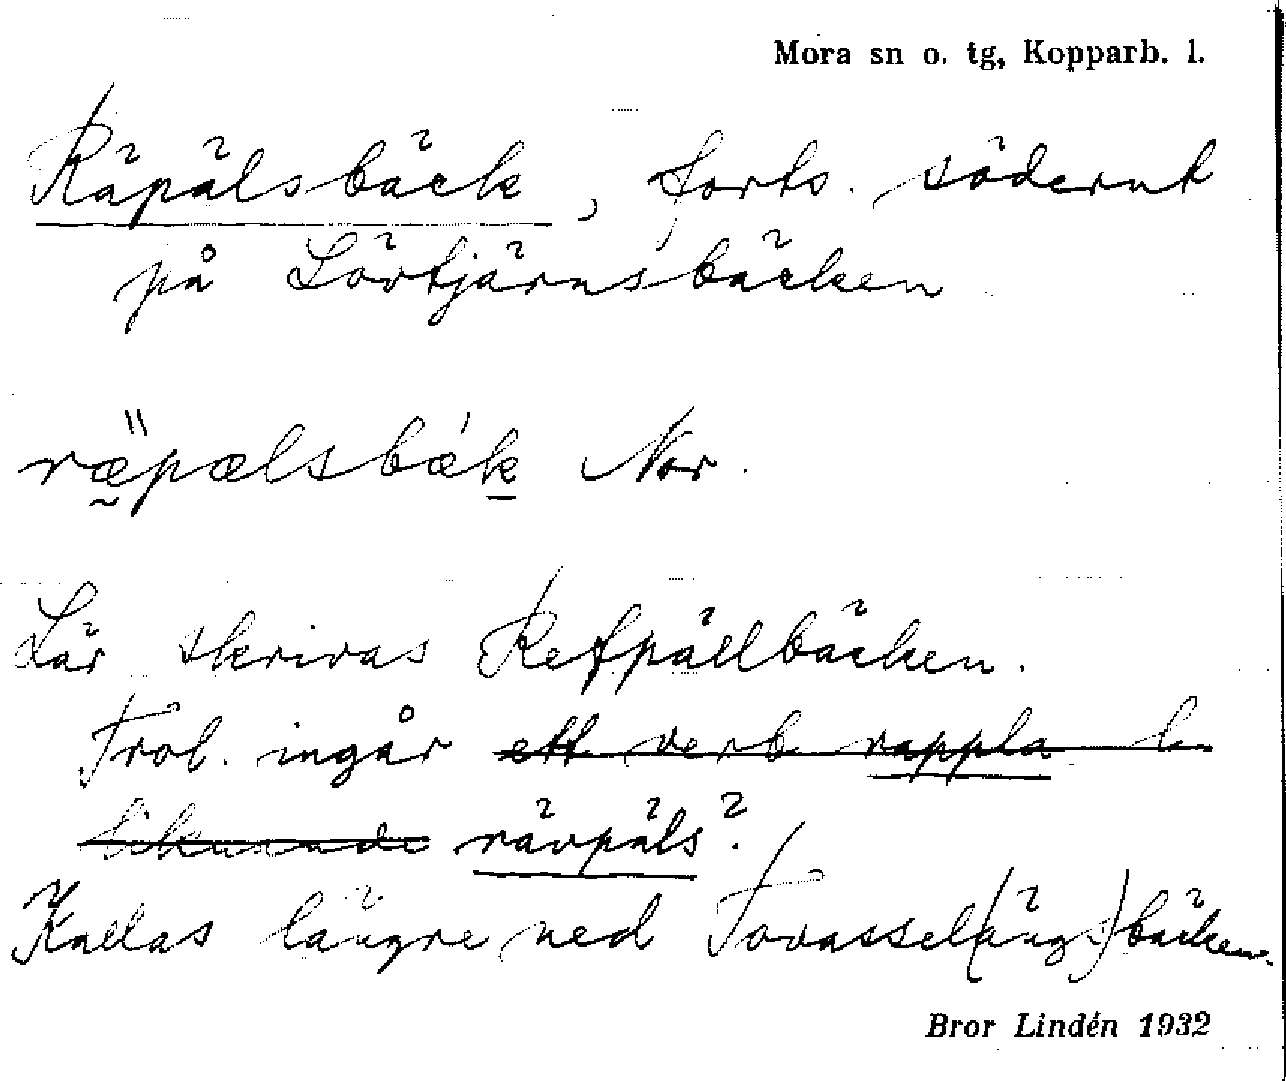 Mora sn o. tg, Kopparb. l.
Räpälsbäck, forts. söderut
på Lövtjärnsbäcken
ræpælsbæk Nor.
Lär skrivas Refpällbäcken.
Trol. ingår ett verb rappla l.
liknande rävpäls?
Kallas längre ned Tovassel(ängs)bäcken.
Bror Lindén 1932